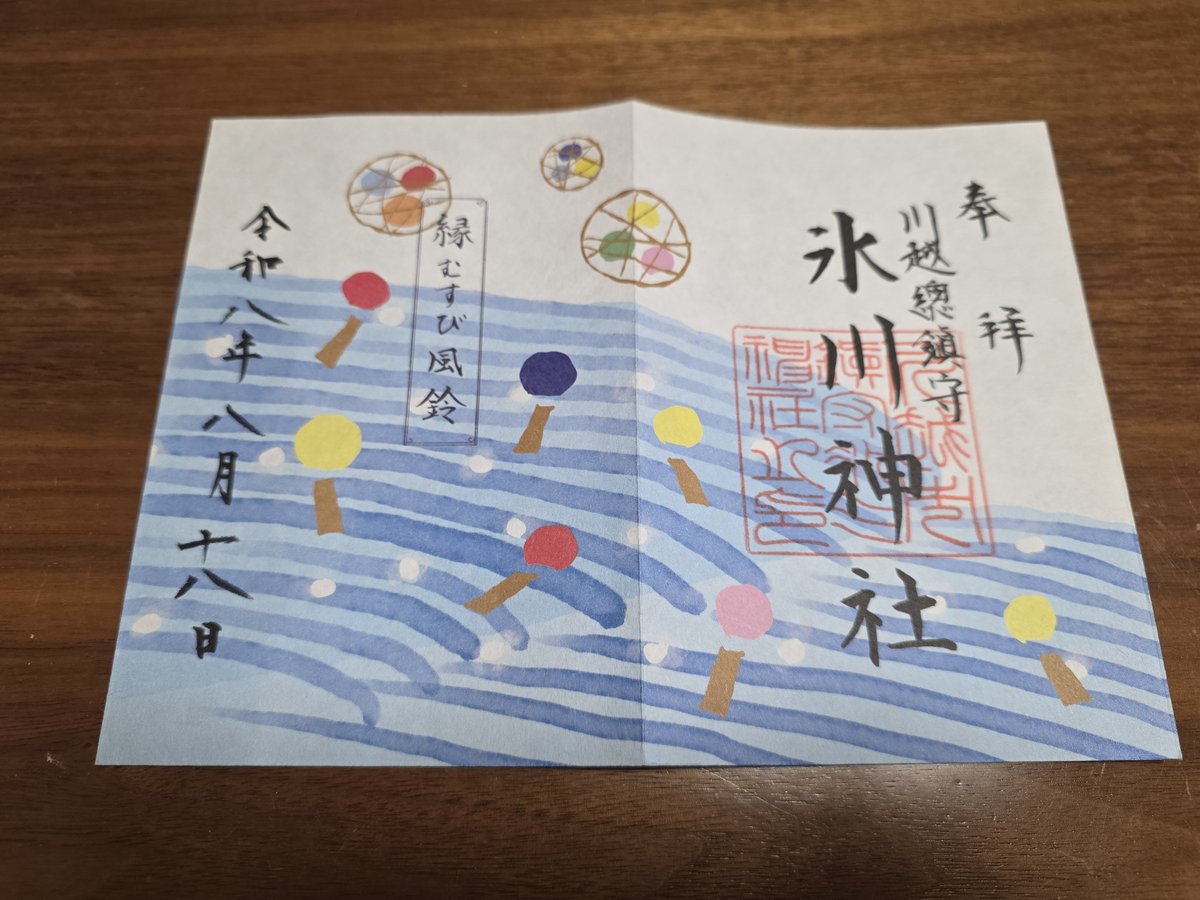 奉拝
川越總鎮守
氷川神社
縁むすび風鈴
令和八年八月十八日